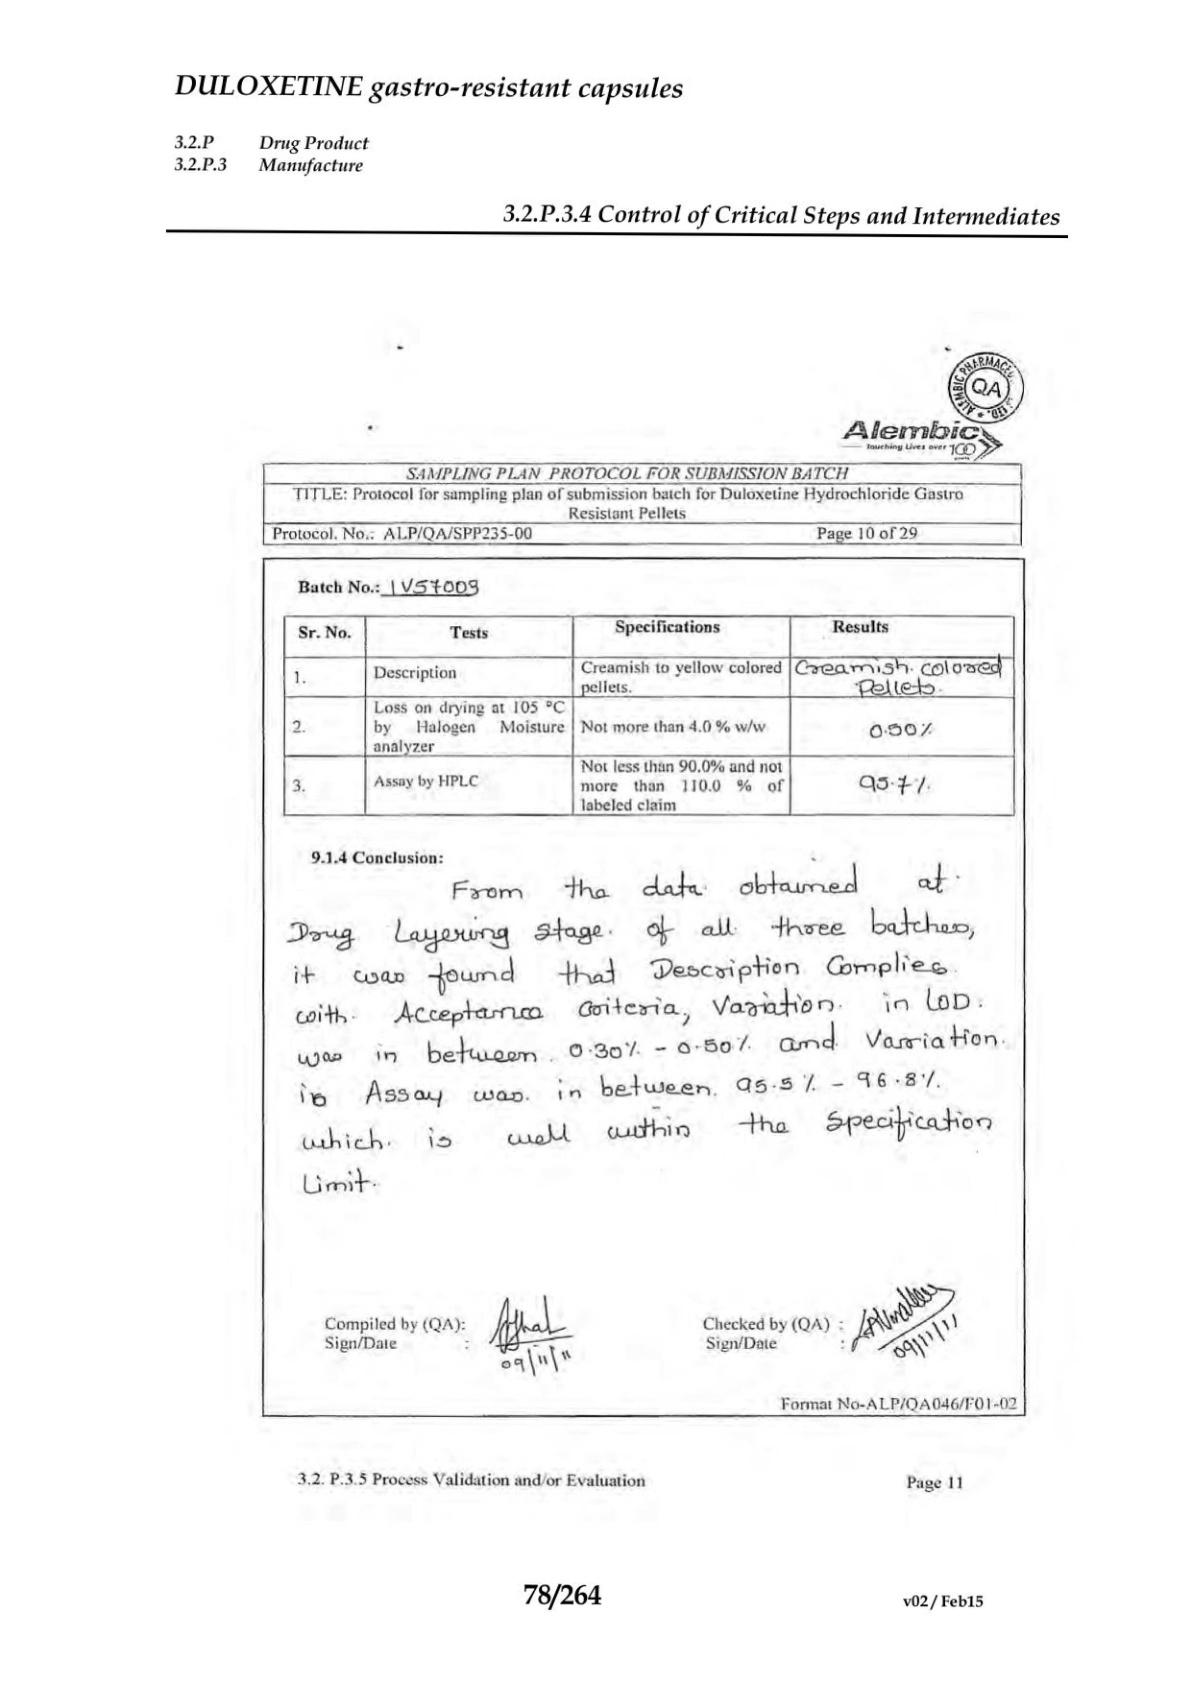 DULOXETINE gastro-resistant capsules
3.2.P Drug Product
3.2.P.3 Manufacture
3.2.P.3.4 Control of Critical Steps and Intermediates
QA
Alembic
Touching Lives over 100
SAMPLING PLAN PROTOCOL FOR SUBMISSION BATCH
TITLE: Protocol for sampling plan of submission batch for Duloxetine Hydrochloride Gastro
Resistant Pellets
Protocol. No.: ALP/QA/SPP235-00 Page 10 of 29
Batch No.: 1V57009
Sr. No. Tests Specifications Results
1. Description Creamish to yellow colored pellets. Creamish. colored Pellets.
2. Loss on drying at 105 °C by Halogen Moisture analyzer Not more than 4.0 % w/w 0.50%
3. Assay by HPLC Not less than 90.0% and not more than 110.0 % of labeled claim 95.7%
9.1.4 Conclusion:
From the data obtained at
Drug Layering stage. of all three batches,
it was found that Description Complies
with. Acceptance Criteria, Variation. in LOD.
was in between 0.30% - 0.50% and Variation.
in Assay was. in between. 95.5% - 96.8%.
which. is well within the Specification
Limit.
Compiled by (QA):
Sign/Date :
09/11/11
Checked by (QA) :
Sign/Date :
09/11/11
Format No-ALP/QA046/F01-02
3.2. P.3.5 Process Validation and/or Evaluation Page 11
78/264
v02 / Feb15